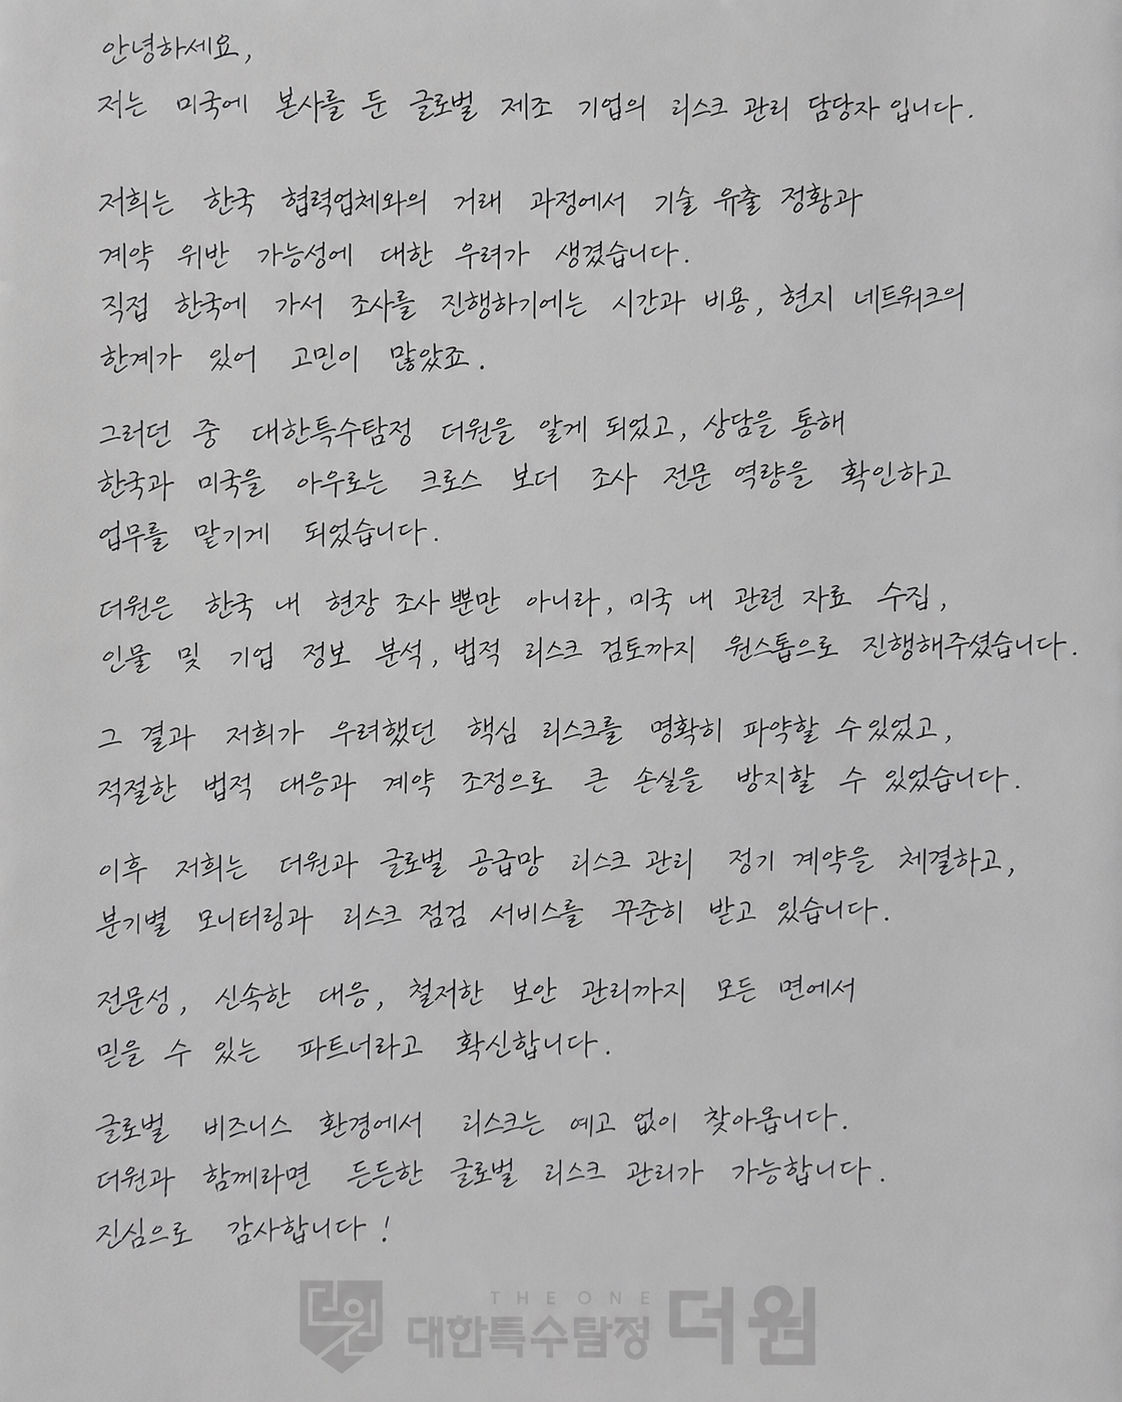 안녕하세요,
저는 미국에 본사를 둔 글로벌 제조 기업의 리스크 관리 담당자 입니다.
저희는 한국 협력업체와의 거래 과정에서 기술 유출 정황과
계약 위반 가능성에 대한 우려가 생겼습니다.
직접 한국에 가서 조사를 진행하기에는 시간과 비용, 현지 네트워크의
한계가 있어 고민이 많았죠.
그러던 중 대한특수탐정 더원을 알게 되었고, 상담을 통해
한국과 미국을 아우르는 크로스 보더 조사 전문 역량을 확인하고
업무를 맡기게 되었습니다.
더원은 한국 내 현장 조사 뿐만 아니라, 미국 내 관련 자료 수집,
인물 및 기업 정보 분석, 법적 리스크 검토까지 원스톱으로 진행해주셨습니다.
그 결과 저희가 우려했던 핵심 리스크를 명확히 파악할 수 있었고,
적절한 법적 대응과 계약 조정으로 큰 손실을 방지할 수 있었습니다.
이후 저희는 더원과 글로벌 공급망 리스크 관리 정기 계약을 체결하고,
분기별 모니터링과 리스크 점검 서비스를 꾸준히 받고 있습니다.
전문성, 신속한 대응, 철저한 보안 관리까지 모든 면에서
믿을 수 있는 파트너라고 확신합니다.
글로벌 비즈니스 환경에서 리스크는 예고 없이 찾아옵니다.
더원과 함께라면 든든한 글로벌 리스크 관리가 가능합니다.
진심으로 감사합니다!
더원
THE ONE
대한특수탐정 더원